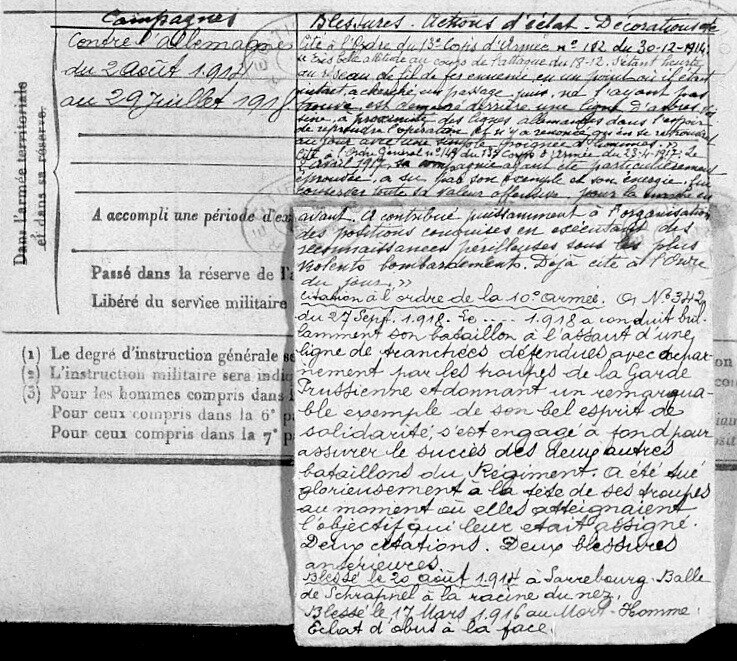 Campagnes
Contre l'Allemagne
du 2 Août 1914
au 29 Juillet 1918
Dans l'armée territoriale
et dans sa réserve.
A accompli une période d'ex
Passé dans la réserve de l'a
Libéré du service militaire
(1) Le degré d'instruction générale se
(2) L'instruction militaire sera indiq
(3) Pour les hommes compris dans l
Pour ceux compris dans la 6e pa
Pour ceux compris dans la 7e pa
Blessures. Actions d'éclat. Décorations
Cité à l'Ordre du 13e Corps d'Armée n° 182 du 30-12-1914
belle attitude au cours de l'attaque du 18-12. S'étant heurté
au réseau de fil de fer ennemi en un point où il était
intact, a cherché un passage puis, ne l'ayant pas
trouvé, est demeuré derrière une ligne d'arbres
à proximité des lignes allemandes dans l'espoir
de reprendre l'opération et n'y a renoncé qu'en se retrouvant
au jour avec une simple poignée d'hommes. "
Cité à l'Ordre Général n° 149 du 13e Corps d'Armée du 23-4-1917. Le
Avril 1917 sa compagnie ayant été particulièrement
éprouvée, a su par son exemple et son énergie, lui
conserver toute sa valeur offensive pour la marche en
avant. A contribué puissamment à l'organisation
des positions conquises en exécutant des
reconnaissances périlleuses sous les plus
violents bombardements. Déjà cité à l'Ordre
du jour. "
Citation à l'ordre de la 10e Armée. O N° 342
du 27 Sept. 1918. Le ..... 1918 a conduit bril-
lamment son bataillon à l'assaut d'une
ligne de tranchées défendues avec achar-
nement par les troupes de la Garde
Prussienne et donnant un remarqua-
ble exemple de son bel esprit de
solidarité, s'est engagé à fond pour
assurer le succès des deux autres
bataillons du Régiment. A été tué
glorieusement à la tête de ses troupes
au moment où elles atteignaient
l'objectif qui leur était assigné.
Deux citations. Deux blessures
antérieures
Blessé le 20 août 1914 à Sarrebourg. Balle
de Schrapnel à la racine du nez.
Blessé le 17 Mars 1916 au Mort-Homme.
Eclat d'obus à la face.